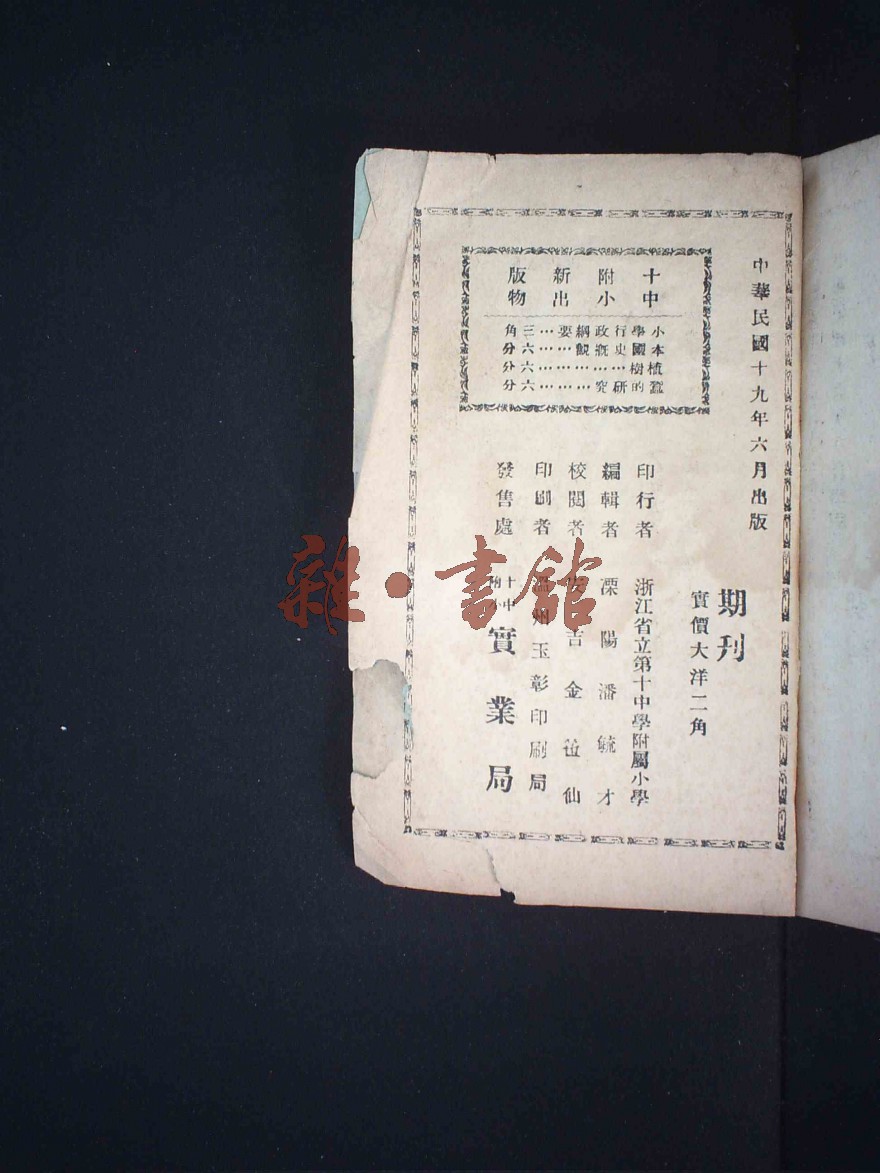 中華民國十九年六月出版
期刊
實價大洋二角
印行者 浙江省立第十中學附屬小學
編輯者 溧陽潘毓才
校閱者 安吉金仙
印刷者 溫州玉彰印刷局
發售處 十中附小實業局
十中附小新出版物
小學行政綱要…三角
本國史概觀……六分
植樹…………六分
蠶的研究……六分
雜·書館